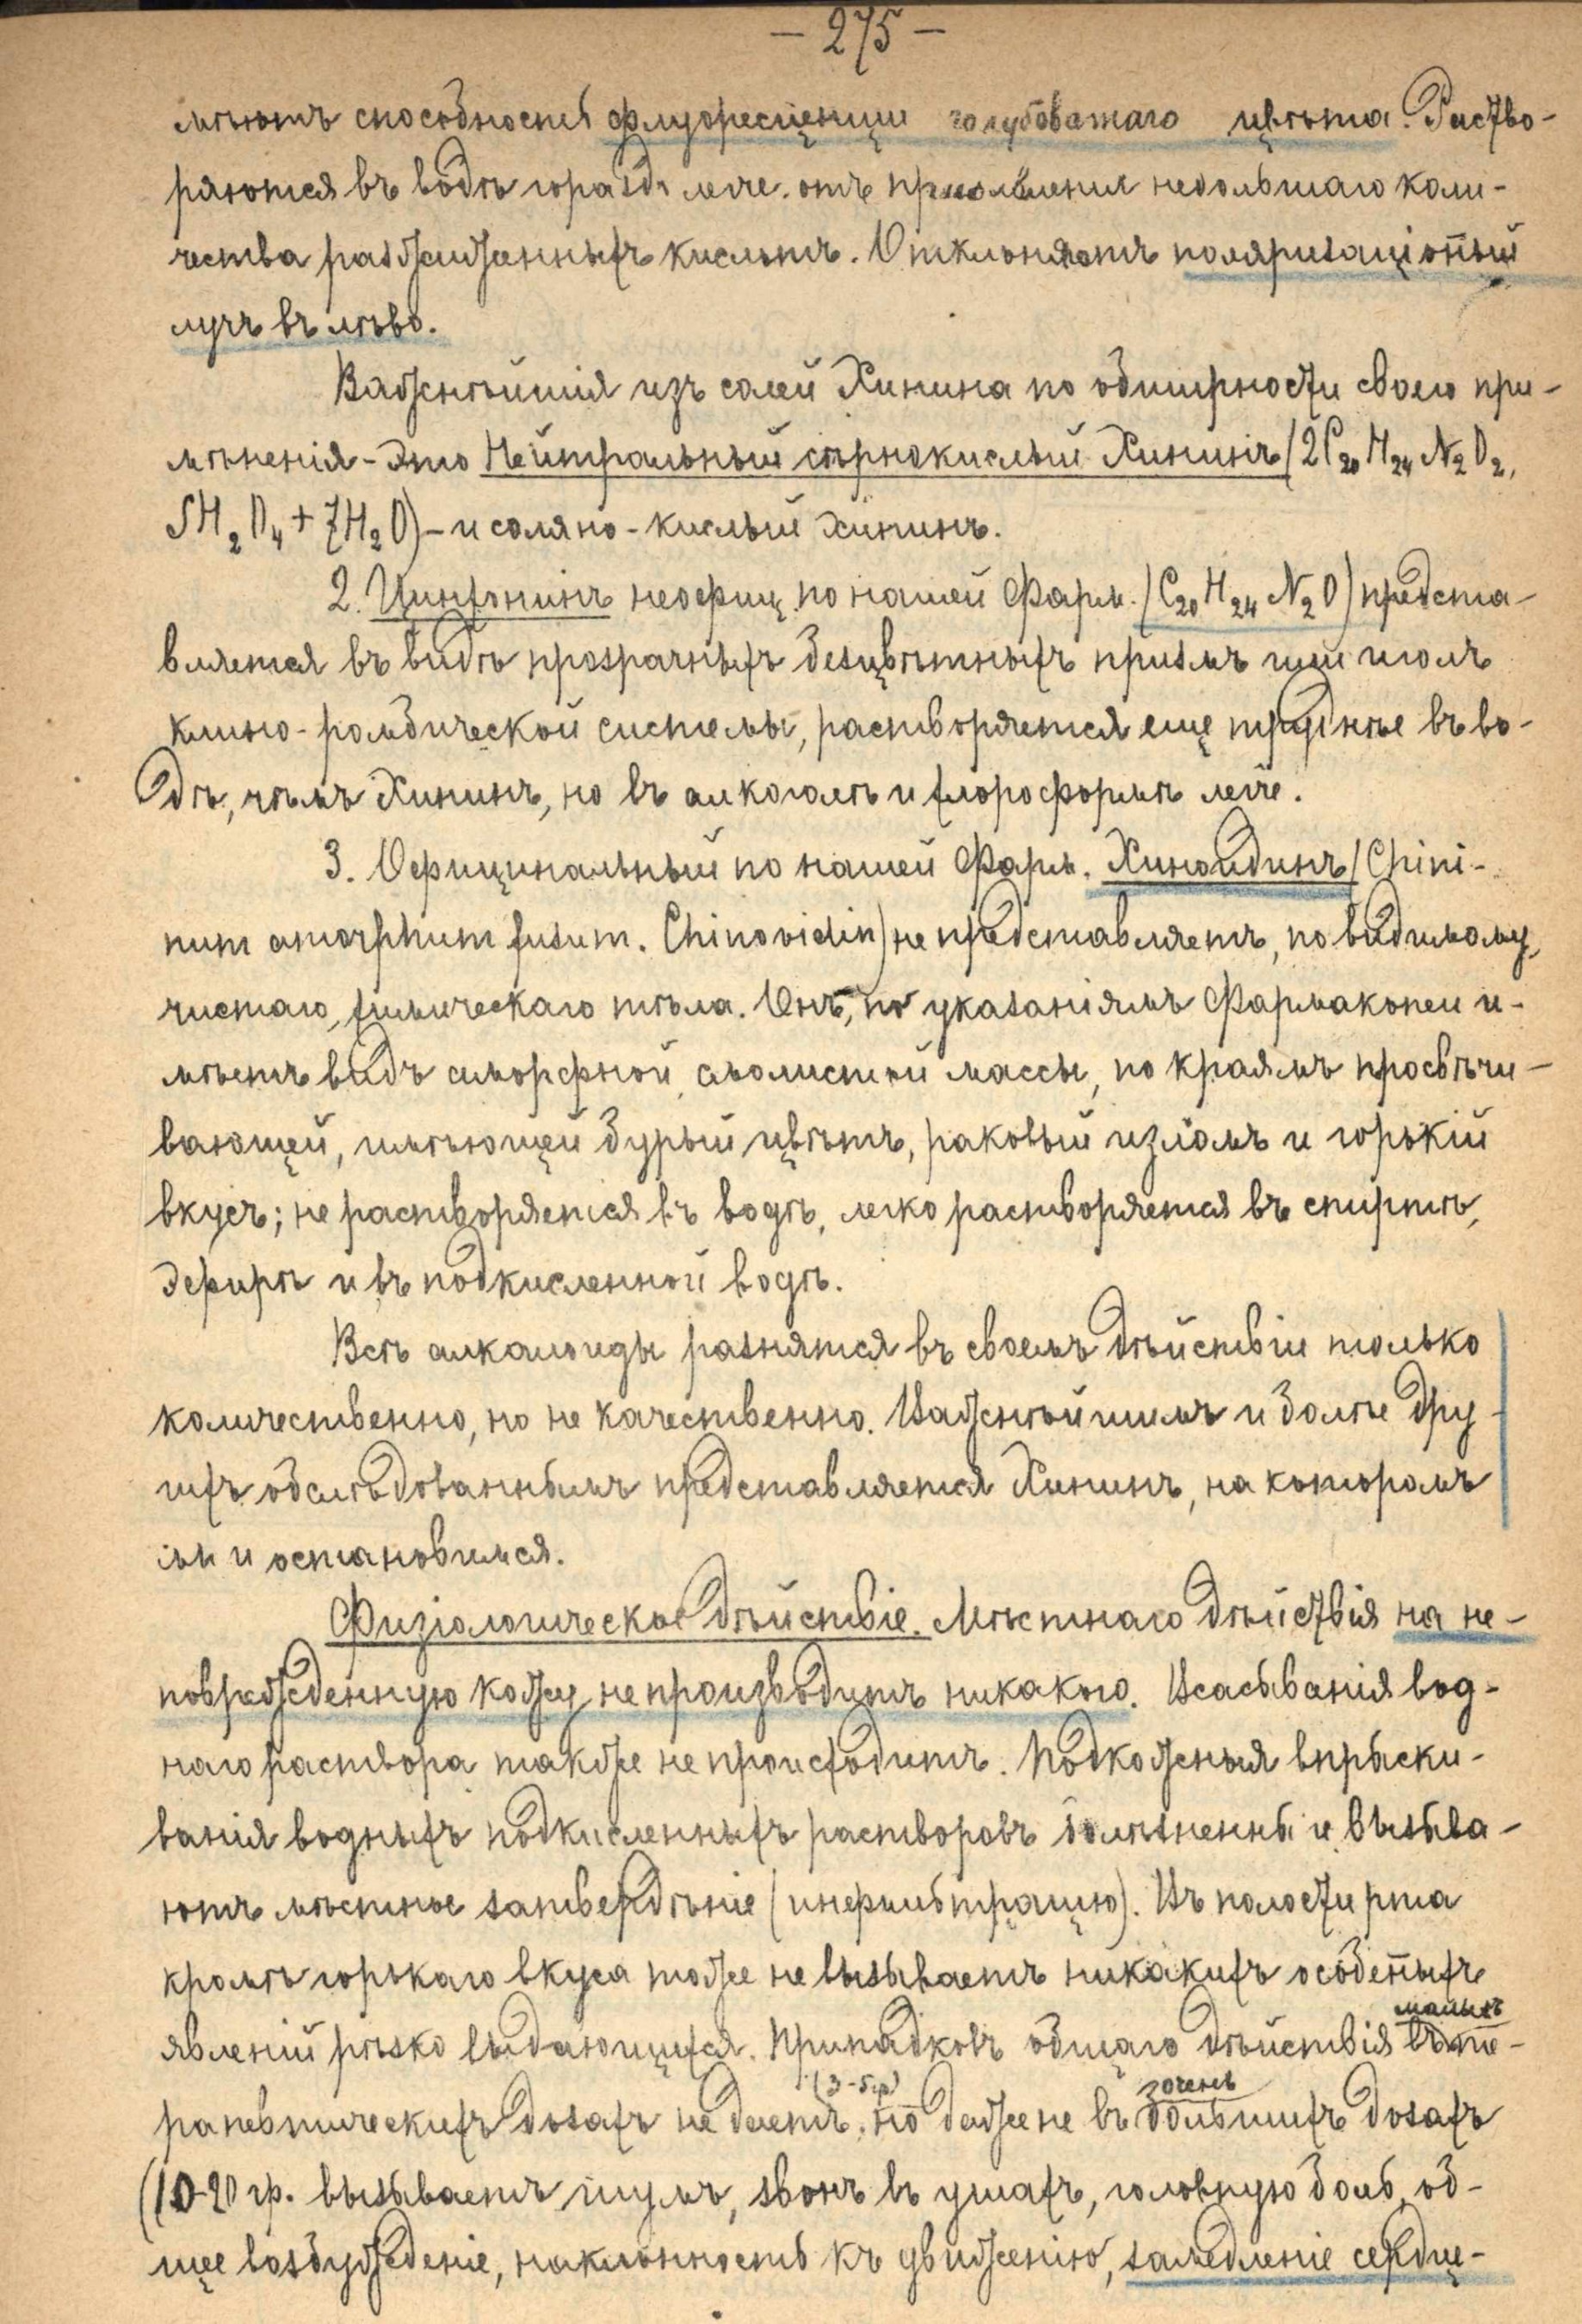 — 275 —
мѣютъ способность флуоресценціи голубоватаго цвѣта. Раство-
ряются въ водѣ горазд. легче отъ прибавленія небольшаго коли-
чества разжиженныхъ кислотъ. Отклоняютъ поляризаціоный
лучъ въ лѣво.
Важнѣйшія изъ солей Хинина по обширности своего при-
мѣненія - это Нейтральный сѣрнокислый Хининъ (2C20 H24 N2 O2,
SH2O4 + 7H2O) - и соляно-кислый хининъ.
2. Цинхонинъ неофиц. по нашей Фарм. (C20 H24 N2 O) предста-
вляется въ видѣ прозрачныхъ безцвѣтныхъ призмъ или иголъ
клино-ромбической системы, растворяется еще труднѣе въ во-
дѣ, чѣмъ Хининъ, но въ алкоголѣ и хлороформѣ легче.
3. Официнальный по нашей Фарм. Хиноидинъ (Chini-
num amorphum fusum. Chinovidin) не представляетъ, по видимому,
чистаго, химическаго тѣла. Онъ, по указаніямъ Фармакопеи и-
мѣетъ видъ аморфной, смолистой массы, по краямъ просвѣчи-
вающей, имѣющей бурый цвѣтъ, раковый изломъ и горькій
вкусъ; не растворяется въ водѣ, легко растворяется въ спиртѣ,
эфирѣ и въ подкисленной водѣ.
Всѣ алкалоиды разнятся въ своемъ дѣйствіи только
количественно, но не качественно. Важнѣйшимъ и болѣе дру-
гихъ обслѣдованнымъ представляется Хининъ, на которомъ
мы и остановимся.
Физіологическое дѣйствіе. Мѣстнаго дѣйствія на не-
поврежденную кожу не производитъ никакого. Всасыванія вод-
наго раствора также не происходитъ. Подкожныя впрыски-
ванія водныхъ подкисленныхъ растворовъ болѣзненны и вызыва-
ютъ мѣстное затвердѣніе (инфильтрацію). Въ полости рта
кромѣ горькаго вкуса тоже не вызываетъ никакихъ особеныхъ
явленій рѣзко выдающихся. Припадковъ общаго дѣйствія въ малыхъ те-
рапевтическихъ дозахъ не даетъ, (3-5 гр) но даже не въ очень большихъ дозахъ
(10-20 гр. вызываетъ шумъ, звонъ въ ушахъ, головную боль, об-
щее возбужденіе, наклонность къ движенію, замедленіе сердце-